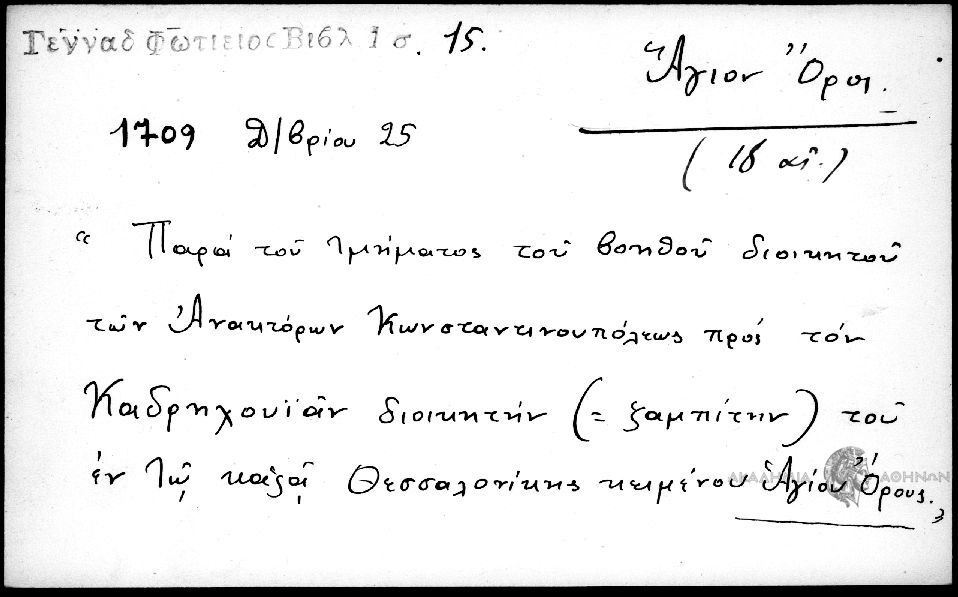 Γεννάδ Φώτιειος Βιβλ 1 σ. 15.
Ἅγιον Ὄρος.
1709 Δ/βρίου 25
(18 αἰ.)
“ Παρά τοῦ Τμήματος τοῦ βοηθοῦ διοικητοῦ
τῶν Ἀνακτόρων Κωνσταντινουπόλεως πρός τόν
Καδρηχουϊᾶν διοικητήν (= ζαμπίτην) τοῦ
ἐν Τῷ καζᾷ Θεσσαλονίκης κειμένου Ἁγίου Ὄρους.„
ΑΚΑΔΗΜΙΑ ΑΘΗΝΩΝ